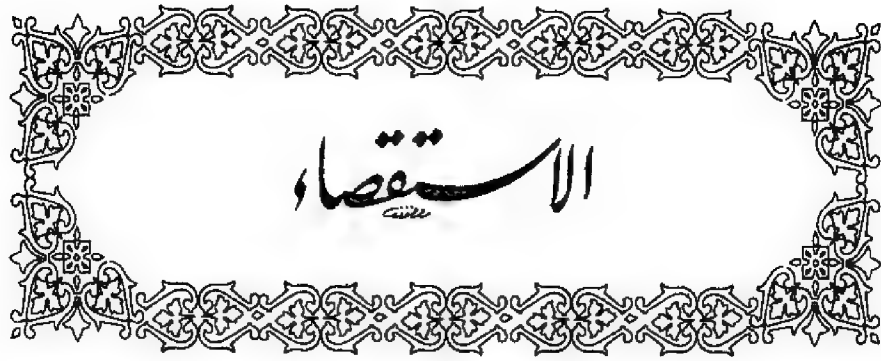 الاستقصاء